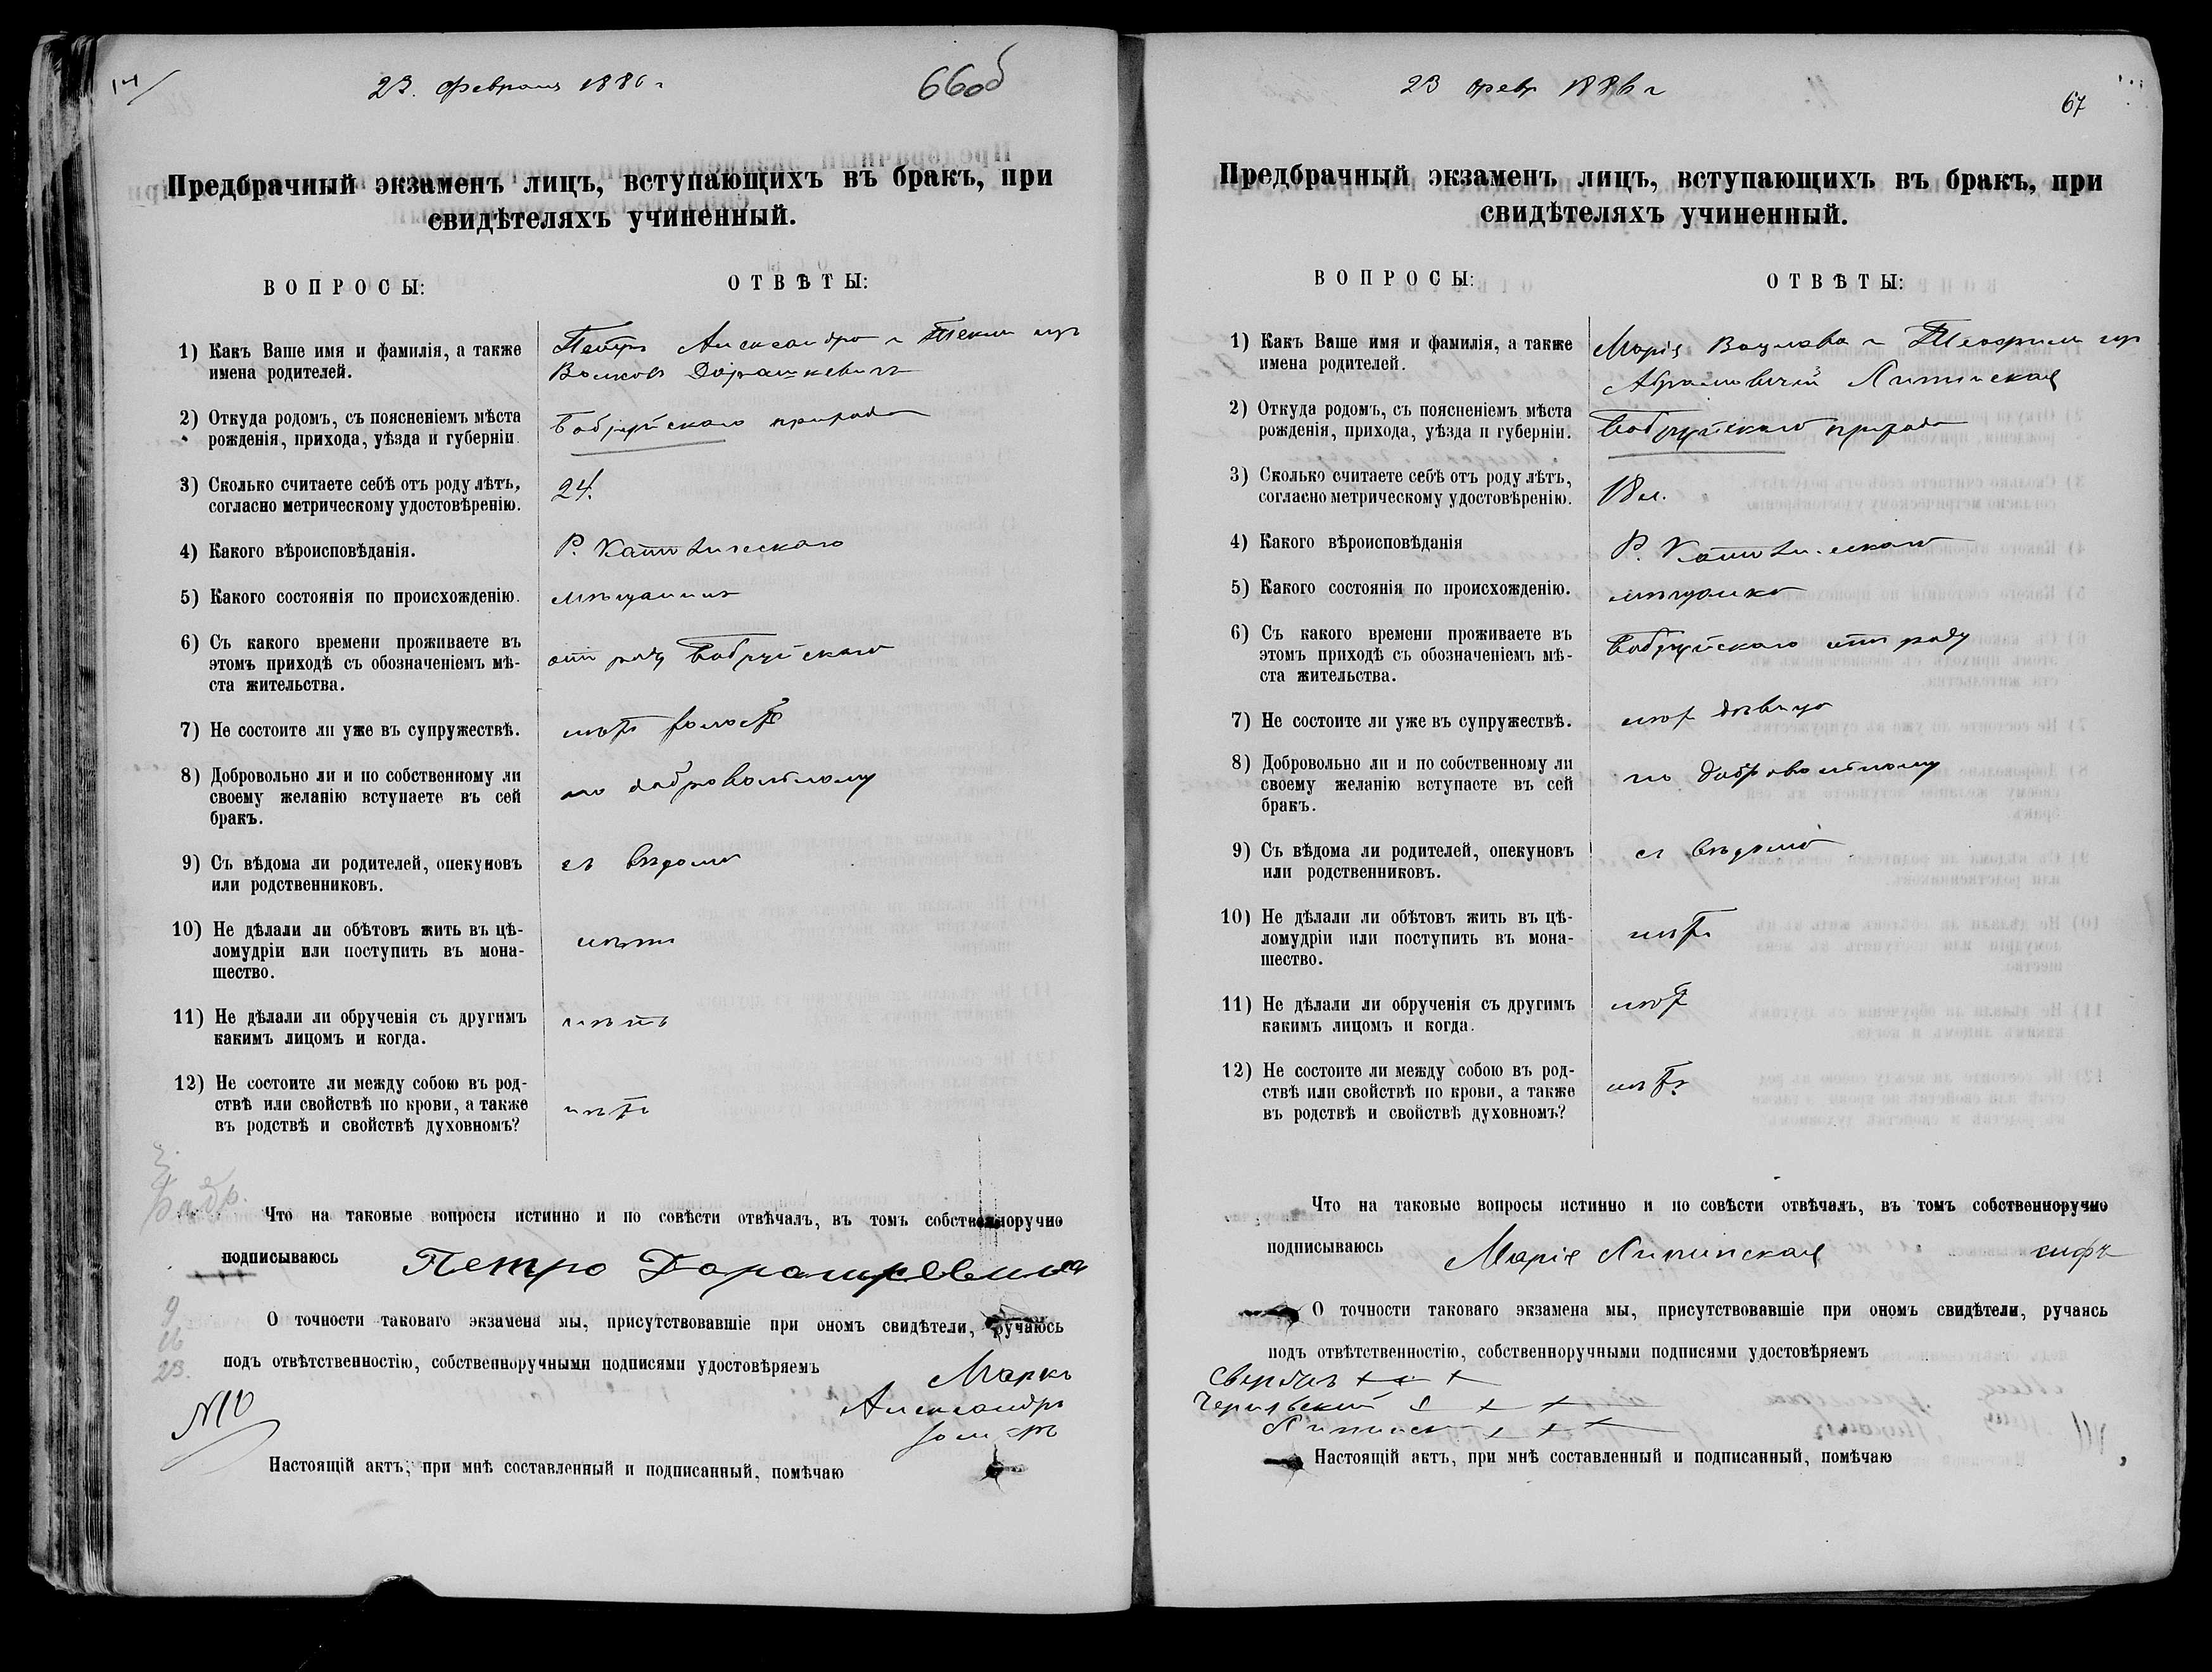 23. Февраля 1886 г
66об
Предбрачный экзаменъ лицъ, вступающихъ въ бракъ, при
свидѣтеляхъ учиненный.
ВОПРОСЫ:
ОТВѢТЫ:
1) Какъ Ваше имя и фамилія, а также
имена родителей.
Петръ Александра и Текли изъ
Дорашкевичъ
2) Откуда родомъ, съ поясненіемъ мѣста
рожденія, прихода, уѣзда и губерніи.
Бобруйскаго прихода
3) Сколько считаете себѣ отъ роду лѣтъ,
согласно метрическому удостовѣренію.
24.
4) Какого вѣроисповѣданія.
Р. Католическаго
5) Какого состоянія по происхожденію.
мѣщанинъ
6) Съ какого времени проживаете въ
этомъ приходѣ съ обозначеніемъ мѣ-
ста жительства.
отъ роду Бобруйскаго
7) Не состоите ли уже въ супружествѣ.
нѣтъ холостъ
8) Добровольно ли и по собственному ли
своему желанію вступаете въ сей
бракъ.
по добровольному
9) Съ вѣдома ли родителей, опекуновъ
или родственниковъ.
съ вѣдома
10) Не дѣлали ли обѣтовъ жить въ цѣ-
ломудріи или поступить въ мона-
шество.
нѣтъ
11) Не дѣлали ли обрученія съ другимъ
какимъ лицомъ и когда.
нѣтъ
12) Не состоите ли между собою въ род-
ствѣ или свойствѣ по крови, а также
въ родствѣ и свойствѣ духовномъ?
нѣтъ
Что на таковые вопросы истинно и по совѣсти отвѣчалъ, въ томъ собственноручно
подписываюсь Петро
О точности таковаго экзамена мы, присутствовавшіе при ономъ свидѣтели, ручаюсь
подъ отвѣтственностію, собственноручными подписями удостовѣряемъ
Маркъ
Александръ
9
16
23.
№10
Настоящій актъ, при мнѣ составленный и подписанный, помѣчаю
23 февр 1886 г
67
Предбрачный экзаменъ лицъ, вступающихъ въ бракъ, при
свидѣтеляхъ учиненный.
ВОПРОСЫ:
ОТВѢТЫ:
1) Какъ Ваше имя и фамилія, а также
имена родителей.
Марія Вацлава и Теофили изъ
Абрамовичей Липинская
2) Откуда родомъ, съ поясненіемъ мѣста
рожденія, прихода, уѣзда и губерніи.
Бобруйскаго прихода
3) Сколько считаете себѣ отъ роду лѣтъ,
согласно метрическому удостовѣренію.
18 л.
4) Какого вѣроисповѣданія
Р. Католическаго
5) Какого состоянія по происхожденію.
мѣщанка
6) Съ какого времени проживаете въ
этомъ приходѣ съ обозначеніемъ мѣ-
ста жительства.
Бобруйскаго отъ роду
7) Не состоите ли уже въ супружествѣ.
нѣтъ дѣвица
8) Добровольно ли и по собственному ли
своему желанію вступаете въ сей
бракъ.
по добровольному
9) Съ вѣдома ли родителей, опекуновъ
или родственниковъ.
съ вѣдома
10) Не дѣлали ли обѣтовъ жить въ цѣ-
ломудріи или поступить въ мона-
шество.
нѣтъ
11) Не дѣлали ли обрученія съ другимъ
какимъ лицомъ и когда.
нѣтъ
12) Не состоите ли между собою въ род-
ствѣ или свойствѣ по крови, а также
въ родствѣ и свойствѣ духовномъ?
нѣтъ
Что на таковые вопросы истинно и по совѣсти отвѣчалъ, въ томъ собственноручно
подписываюсь Марія Липинская
О точности таковаго экзамена мы, присутствовавшіе при ономъ свидѣтели, ручаясь
подъ отвѣтственностію, собственноручными подписями удостовѣряемъ
+ + +
+ + +
+ + +
Настоящій актъ, при мнѣ составленный и подписанный, помѣчаю